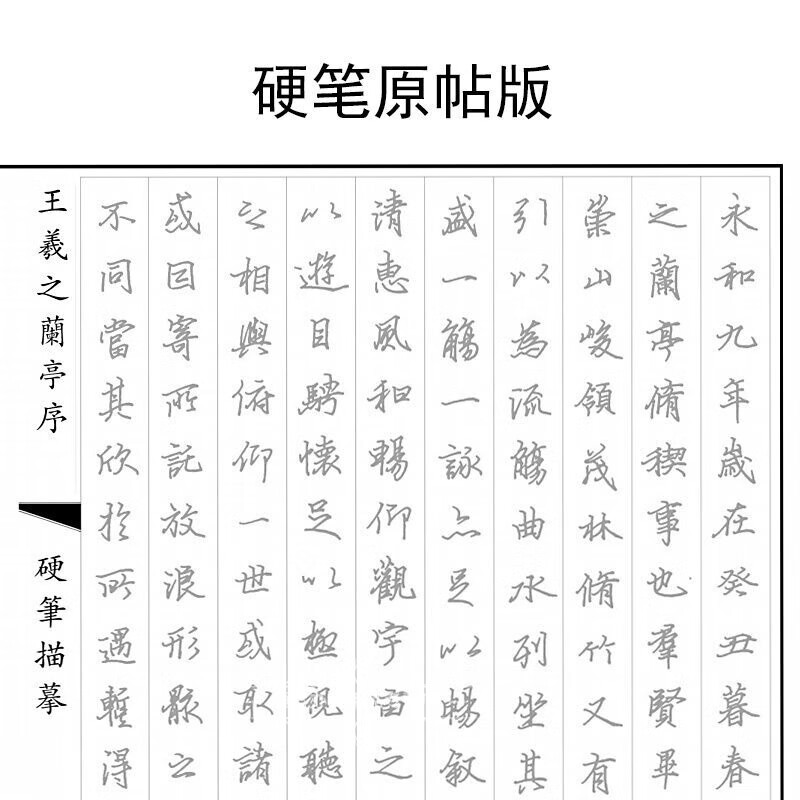 硬笔原帖版
永和九年歲在癸丑暮春
之蘭亭脩稧事也羣賢畢
崇山峻領茂林脩竹又有
引以為流觴曲水列坐其
盛一觴一詠亦足以暢叙
清惠風和暢仰觀宇宙之
以遊目騁懷足以極視聽
之相與俯仰一世或取諸
或因寄所託放浪形骸之
不同當其欣於所遇暫得
王羲之蘭亭序
硬筆描摹